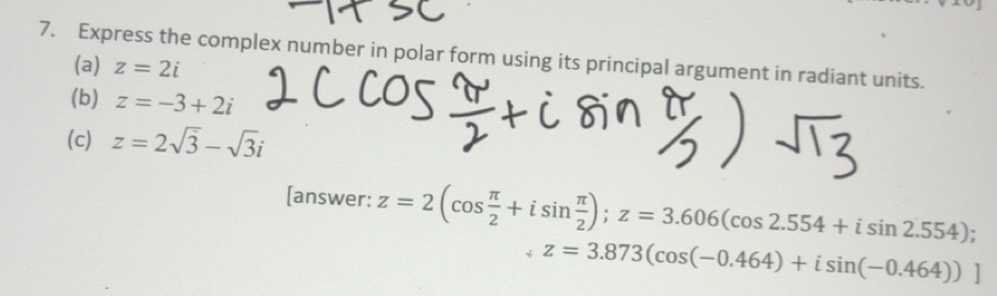 -1+5C
7. Express the complex number in polar form using its principal argument in radiant units.
(a) z = 2i
(b) z = -3 + 2i
2 ( cos π/2 + i sin π/2 ) √13
(c) z = 2√3 - √3i
[answer: z = 2 (cos π/2 + i sin π/2); z = 3.606(cos 2.554 + i sin 2.554);
z = 3.873(cos(-0.464) + i sin(-0.464)) ]